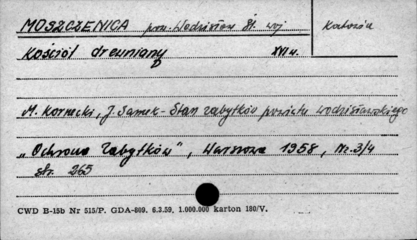 MOSZCZENICA pow. Wodzisław Śl. woj Katowice
Kościół drewniany XVI w.
M. Kornecki, J. Samek - Stan zabytków powiatu wodzisławskiego
„Ochrona Zabytków", Warszawa 1958, Nr. 3/4
str. 265
CWD B-15b Nr 515/P. GDA-809. 6.3.59. 1.000.000 karton 180/V.